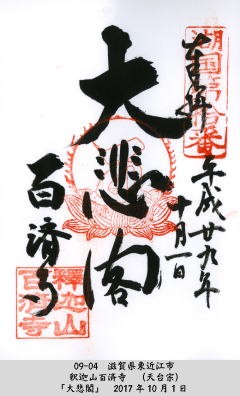 奉拝
湖国第拾番
平成廿九年
十月一日
大悲閣
百済寺
釋迦山
百済寺
09-04 滋賀県東近江市
釈迦山百済寺 （天台宗）
「大悲閣」 2017年10月1日